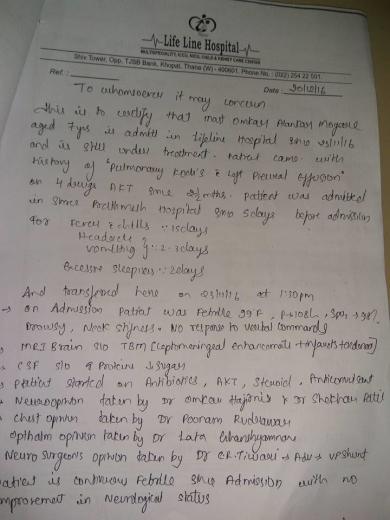 Life Line Hospital
MULTISPECIALITY, ICCU, NICU, CHILD & KIDNEY CARE CENTER
Shiv Tower, Opp. TJSB Bank, Khopat, Thane (W) - 400601. Phone No.: (022) 254 22 501.
Ref.: Date: 30/12/16
To whomsoever it may concern
This is to certify that mast omkar
aged 7yrs is admitt in Lifeline Hospital 23/12/16
and is still under treatment. Patient came with
History of "Pulmonary Koch's & Left Pleural effusion"
on 4 drugs AKT since 2½ mths. Patient was admitted
in Hospital 5days before admission
for Fever & chills :: 15days
Headache
vomitting } :: 2-3days
Excessive sleepiness :: 2days
And transfered here on 23/12/16 at 1:30pm
→ on Admission Patient was Febrile 99°F, P→108/m, SpO2→98%
Drowsy, Neck stifness + No response to verbal commands
MRI Brain S/O TBM [Leptomeningeal enhancement + infarcts +
CSF S/O ↑ Proteins ↓ sugar
Patient started on Antibiotics, AKT, Steroid, Anticonvulsant
Neuroopinion taken by Dr omkar & Dr Shekhar Patil
chest opinion taken by Dr Poonam
opthalm opinion taken by Dr Lata
Neuro surgeons opinion taken by Dr C.R. Tiwari → Adv → VP shunt
Patient is continuous Febrile since Admission with no
improvement in Neurological status